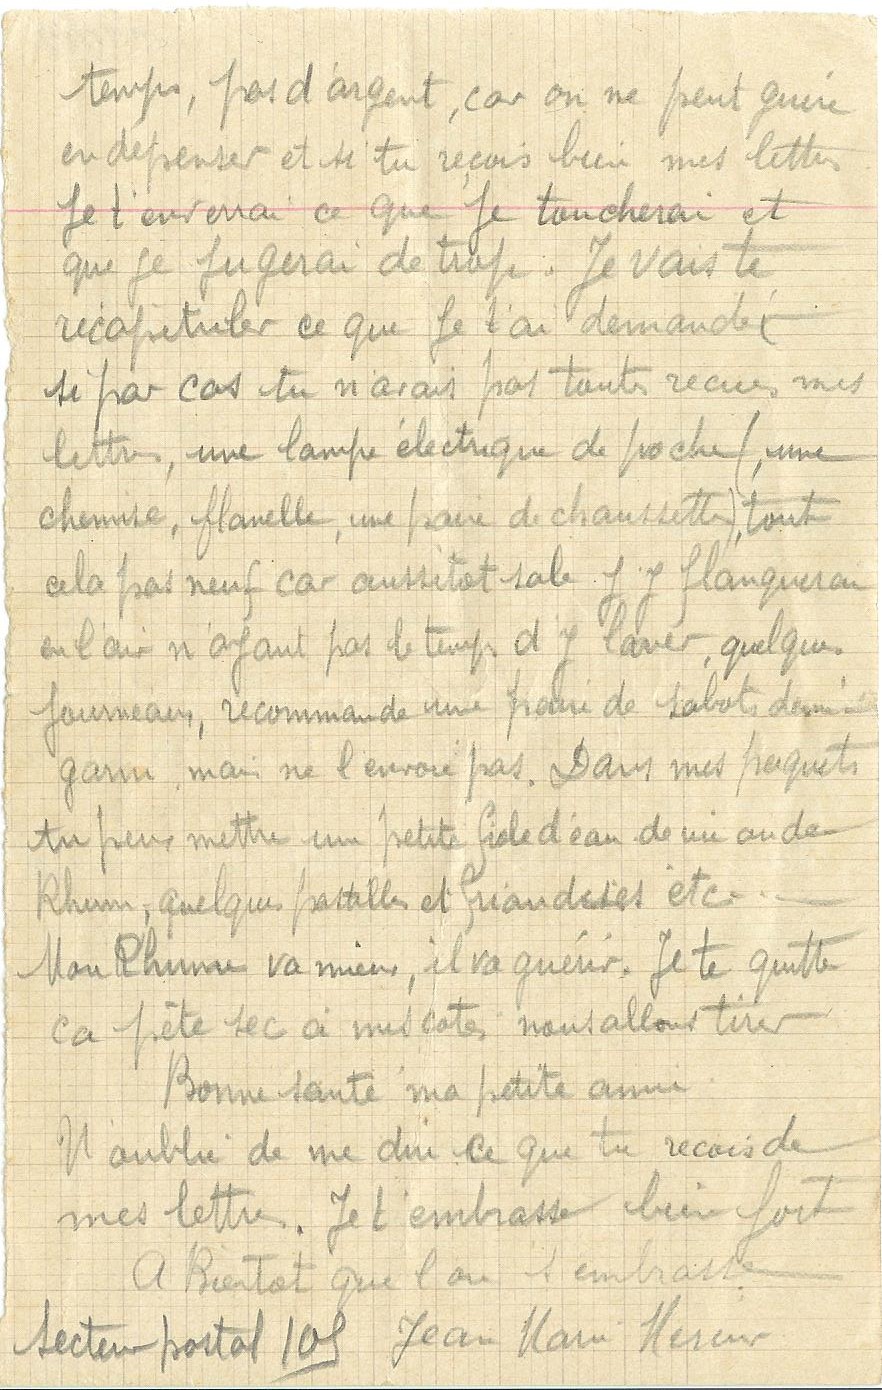 temps, pas d'argent, car on ne peut guère
en dépenser et si tu reçois bien mes lettres
Je t'enverrai ce que Je toucherai et
que je Jugerai de trop. Je vais te
récapituler ce que Je t'ai demandé (
si par cas tu n'avais pas toutes recues mes
lettres, une lampe électrique de poche (, une
chemise, flanelle, une paire de chaussettes), tout
cela pas neuf car aussitot sale J'y flanquerai
en l'air n'ayant pas le temps d'y laver, quelques
Journeaux, recommande une paire de sabots demi-
garni, mais ne l'envoie pas. Dans mes paquets
tu peux mettre une petite fiole d'eau de vie ou de
Rhum, quelques pastilles et friandises etc.
Mon Rhume va mieux, il va guérir. Je te quitte
ca pête sec à mes cotés nous allons tirer
Bonne santé ma petite amie
N'oublie de me dire ce que tu recois de
mes lettres. Je t'embrasse bien fort
A Bientot que l'on s'embrasse
Secteur postal 109 Jean Marie